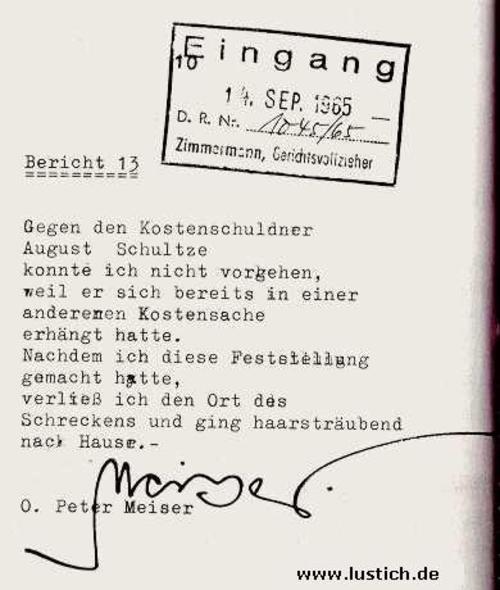 Eingang
10
14. SEP. 1965
D. R. Nr. 1045/65
Zimmermann, Gerichtsvollzieher
Bericht 13
Gegen den Kostenschuldner
August Schultze
konnte ich nicht vorgehen,
weil er sich bereits in einer
anderenen Kostensache
erhängt hatte.
Nachdem ich diese Feststellung
gemacht hatte,
verließ ich den Ort des
Schreckens und ging haarsträubend
nach Hause.-
Meiser
O. Peter Meiser
www.lustich.de